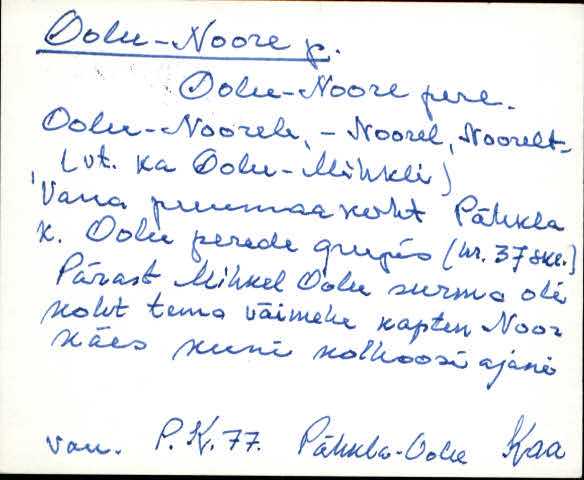 Oolu-Noore p.
Oolu-Noore pere.
Oolu-Noorele, - Noorel, Noorelt-
(vt. ka Oolu-Mihkli)
Vana puumaa koht Pähkla
k. Oolu perede grupis (nr. 37 ske.)
Pärast Mihkel Oolu surma oli
koht tema väimehe kapten Noor
käes kuni kolhoosi ajani
van. P.K. 77. Pähkla-Oolu Kaa